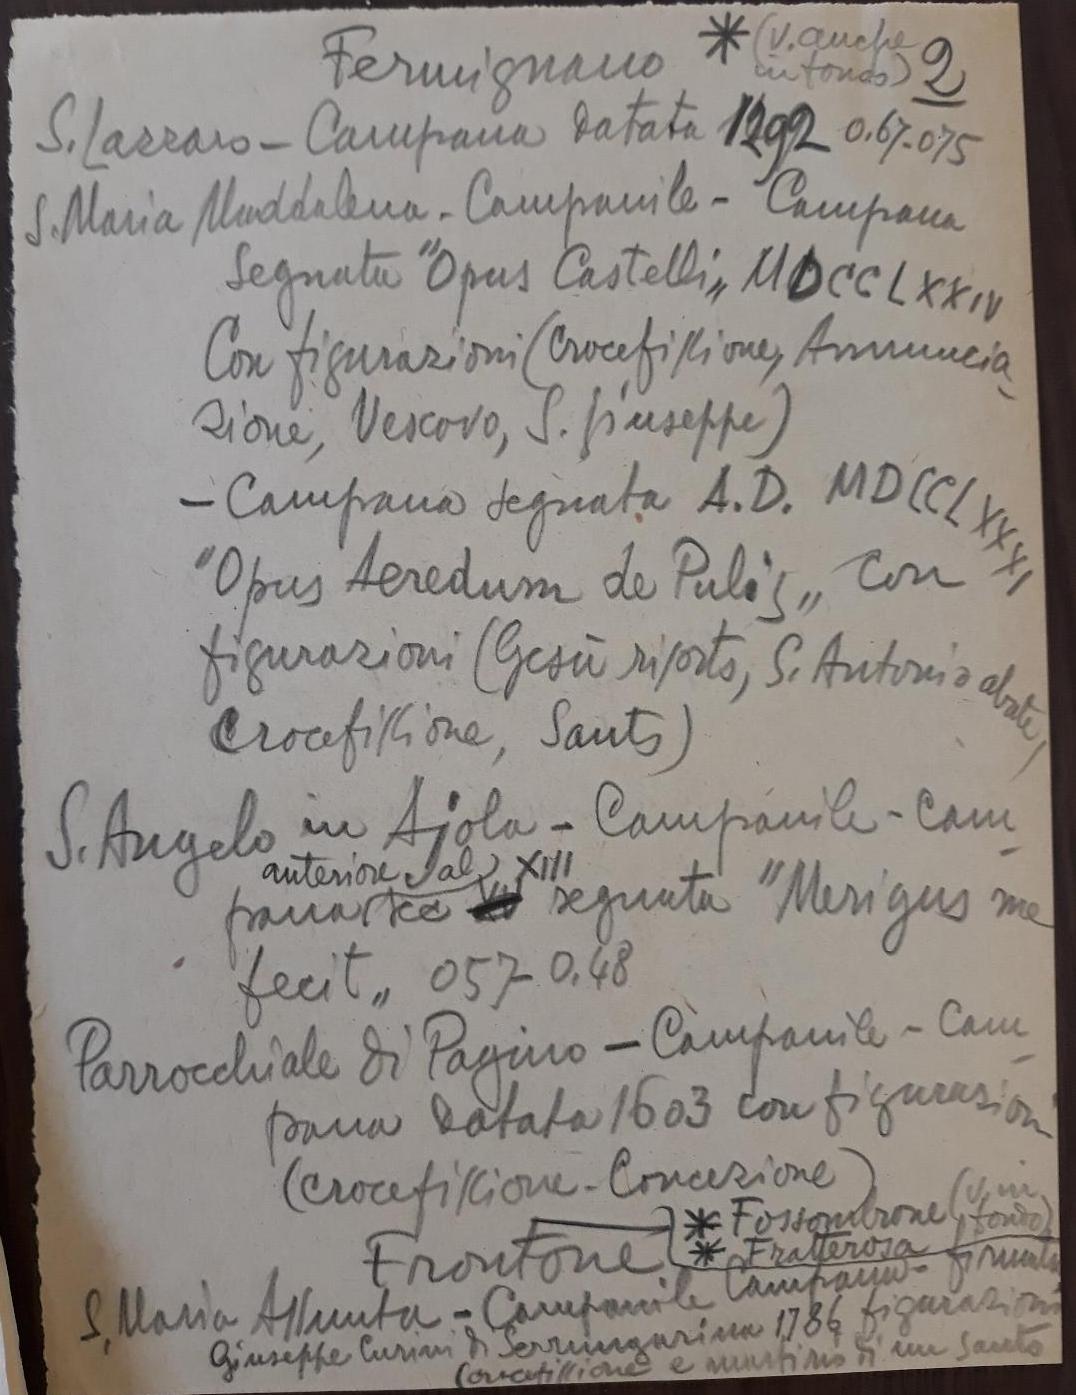 Fermignano * (v. anche
in fondo) 2
S. Lazzaro – Campana datata 1292 0.67-075
S. Maria Maddalena - Campanile - Campana
segnata "Opus Castelli„ MDCCLXXIV
Con figurazioni (Crocefissione, Annuncia-
zione, Vescovo, S. Giuseppe)
– Campana segnata A.D. MDCCLXXXI
"Opus Aeredum de Pulis„ con
figurazioni (Gesù risorto, S. Antonio abate,
Crocefissione, Santo)
S. Angelo in Ajola – Campanile - Cam-
anteriore al XIII
pana (sec segnata "Merigus me
fecit„ 057-0.48
Parrocchiale di Pagino – Campanile - Cam-
pana datata 1603 con figurazioni
(crocefissione - Concezione)
* Fossombrone (v. in fondo)
* Fratterosa
Frontone
S. Maria Assunta – Campanile Campana - firmata
Giuseppe Curini di Serrungarina 1786 figurazioni
(crocefissione e martirio di un Santo